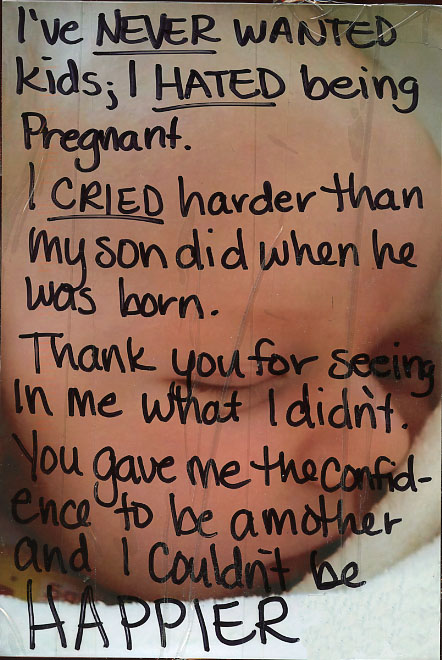 I've NEVER WANTED
kids; I HATED being
Pregnant.
I CRIED harder than
my son did when he
was born.
Thank you for seeing
In me what I didn't.
You gave me the confid-
ence to be a mother
and I couldn't be
HAPPIER